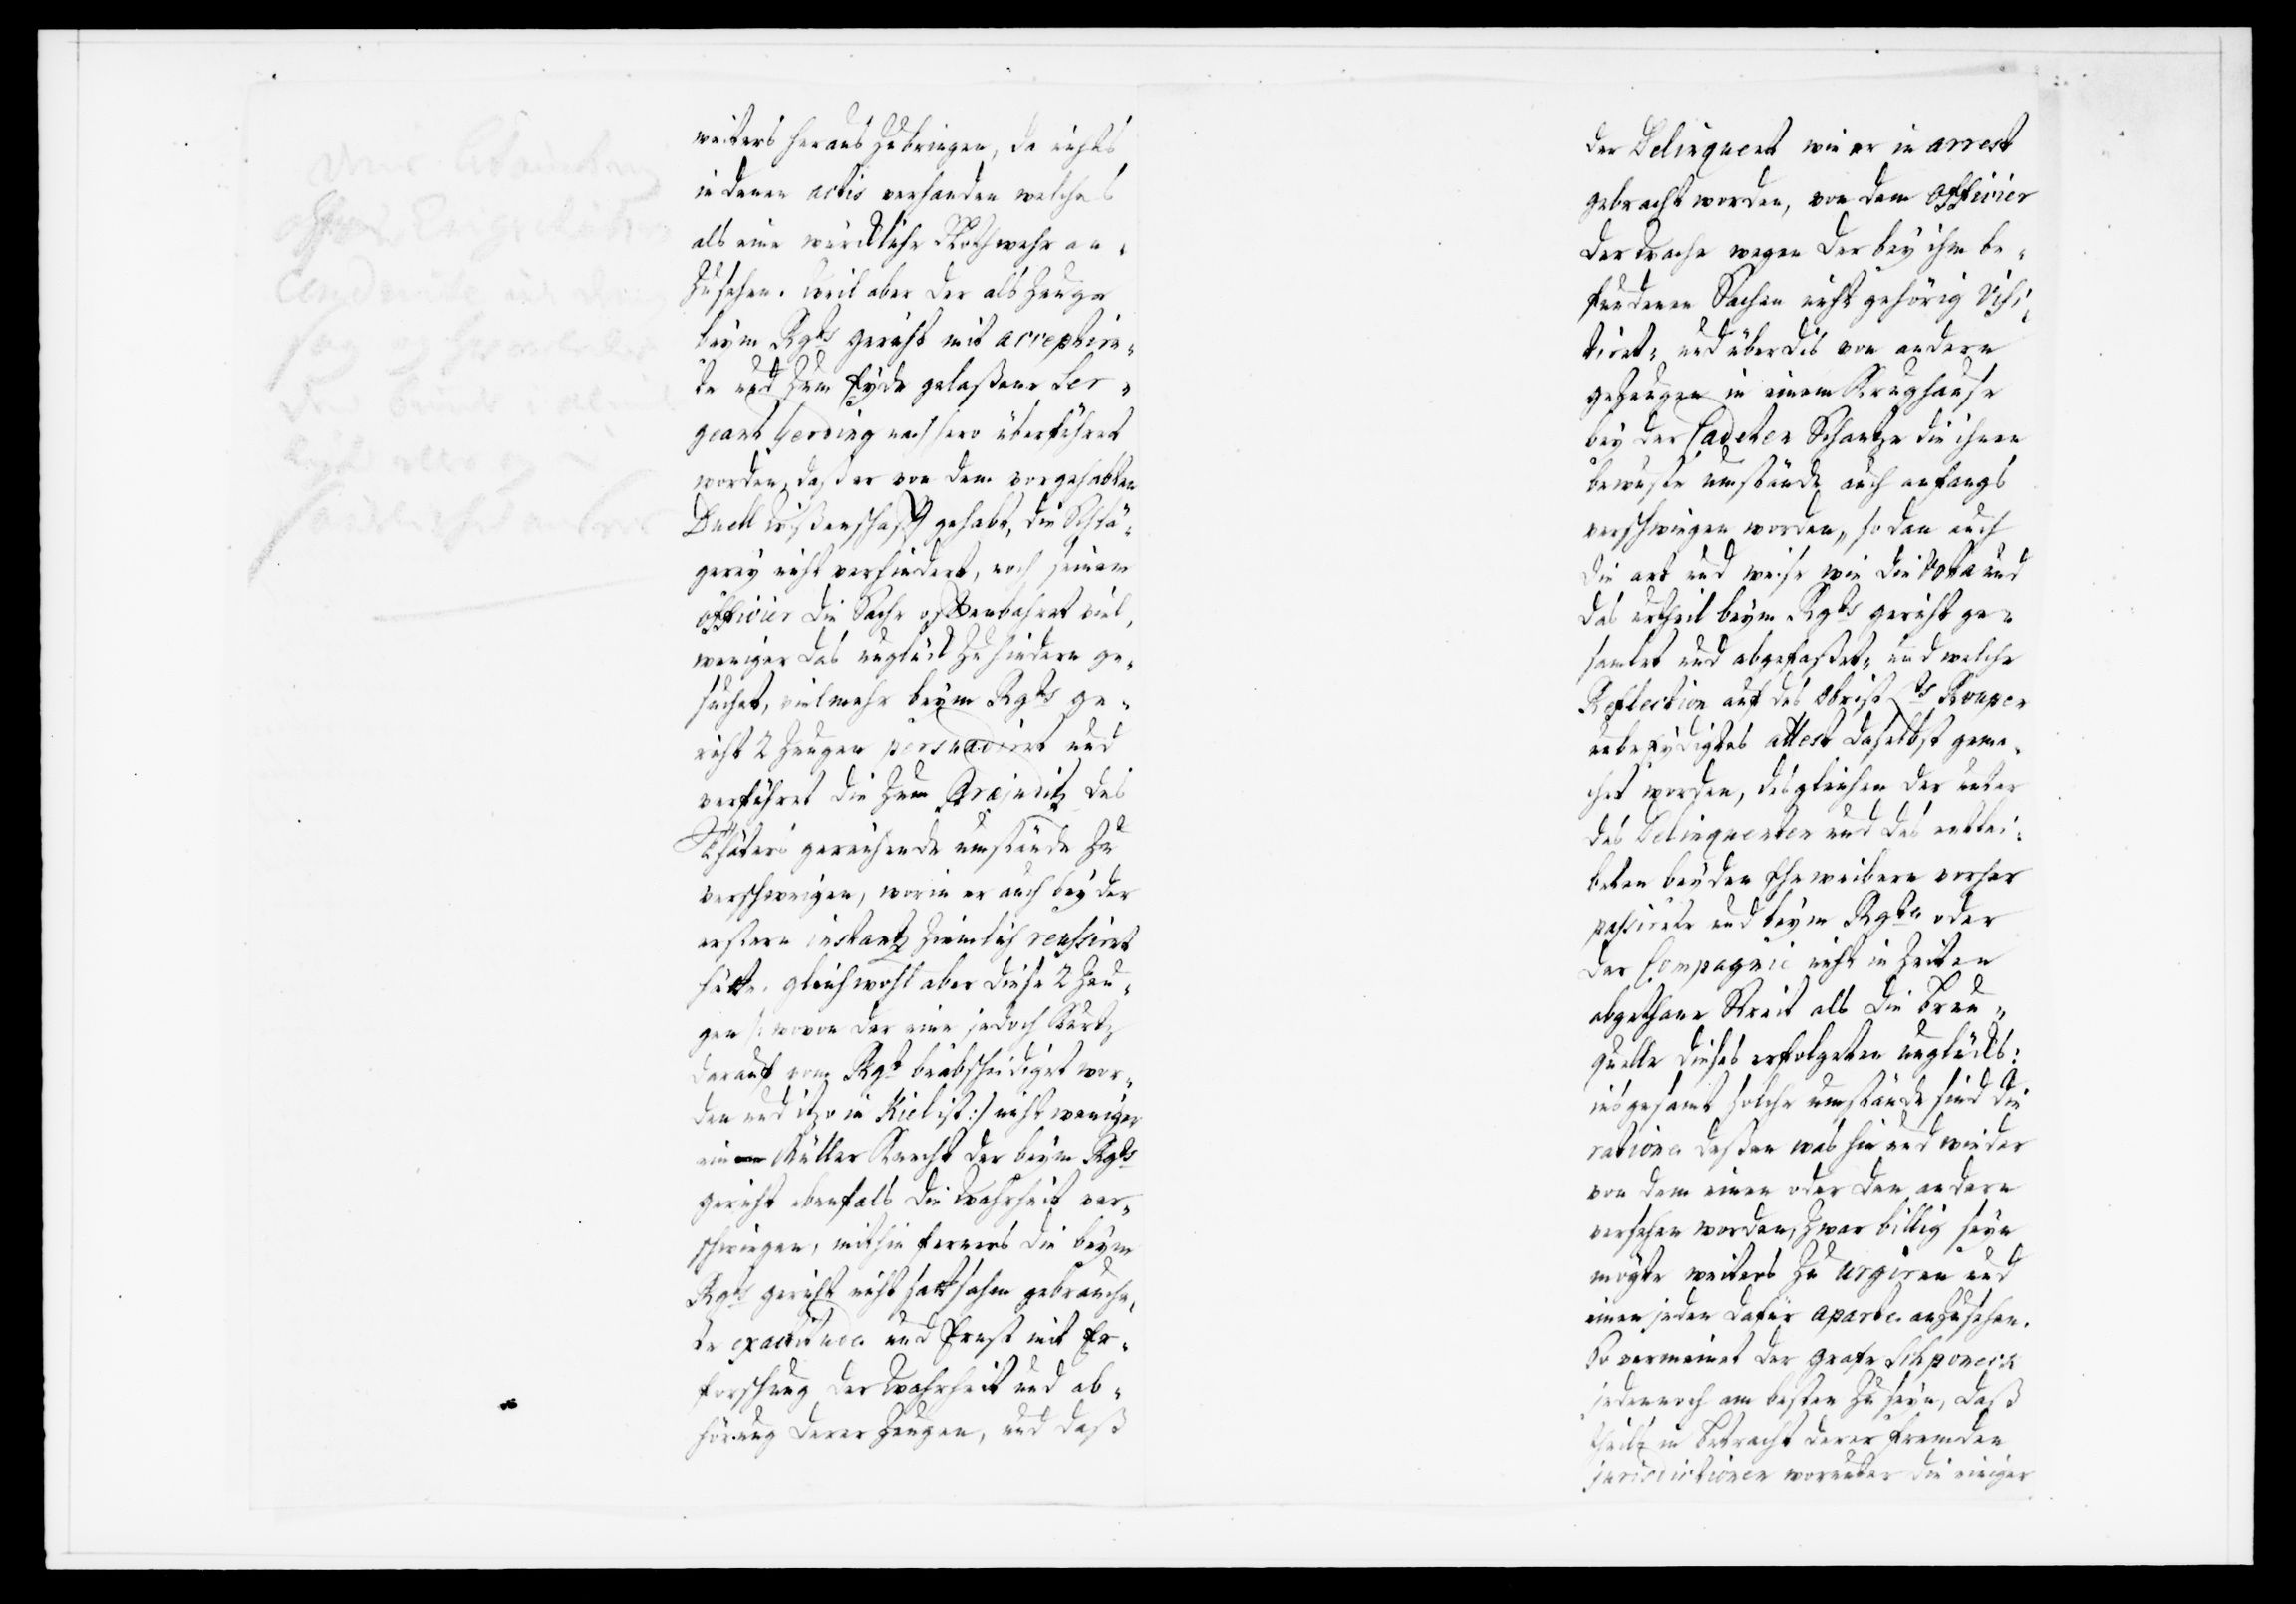 weiters heraus zubringen, da nichts
in denen actis verhanden welches
als eine würckliche Nothwehr an-
zusehen. weil aber der als Zeuge
beym Rgts gericht mit acceptir-
te und zum Eyde gelaßene Ser-
geant Gerding nachhero überführet
worden, daß er von dem vorgehabten
Duell wißenschafft gehabt, die Schlä-
gerey nicht verhindert, noch seinem
officier die Sache offenbahret viel
weniger das unglück zu hindern ge-
suchet, vielmehr beym Rgts ge-
richt 2 Zeugen persuadiret und
verführet die zum Præjuditz des
Thäters gereichende umstände zu
verschweigen, worin er auch bey der
erstern instantz ziemlich reussiret
hätte. gleichwohl aber diese 2 Zeu-
gen /: wovon der eine jedoch kurtz
darauf vom Rgt beabschiediget wor-
den und itzo in Kiel ist :/ nicht weniger
ein Müller Knecht der beym Rgts
gericht ebenfals die Wahrheit ver-
schwiegen, mithin ferners die beym
Rgts gericht nicht sattsahm gebrauch-
te exactitude und Ernst mit Er-
forschung der Wahrheit und ab-
hörung derer Zeugen, und daß
der Delinquent wie er in arrest
gebracht worden, von dem officier
der wache wegen der bey ihm be-
fundenen Sachen nicht gehörig visi-
tiret, und über dis von andern
gezeugen in einem Krughause
bey der Cadeten Schantze die ihnen
bewuste umstände auch anfangs
verschwiegen worden, so dan auch
die art und weise wie die Vota und
das urtheil beym Rgts gericht ge-
samlet und abgefaßet, und welche
Reflection auf des Obrist Lts
unbeeydigtes attest daselbst gema-
chet worden, desgleichen der unter
des Delinquenten und des entlei-
beten beyden Eheweibern vorher
passirte und beym Rgte oder
der Compagnie nicht in Zeiten
abgethane Streit als die Brun-
quelle dieses erfolgeten unglücks:
insgesamt solche umstände sind die
ratione deßen was hie und wieder
von dem einen oder den andern
versehen worden, zwar billig seyn
mögte weiters zu urgiren und
einen jeden dafür aparte anzusehen.
So vermeinet der Grafe Schponeck
jedennoch am besten zu seyn, daß
theils in Betracht derer frembden
jurisdictionen worunter die einiger